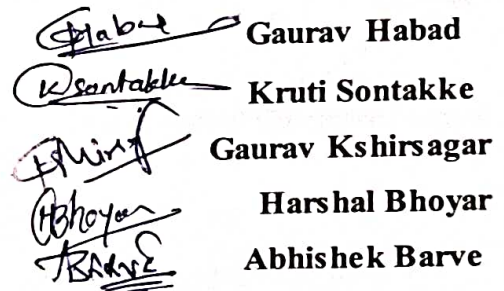 GHabad Gaurav Habad
KSontakke Kruti Sontakke
Gaurav Kshirsagar
HBhoyar Harshal Bhoyar
ABARVE Abhishek Barve